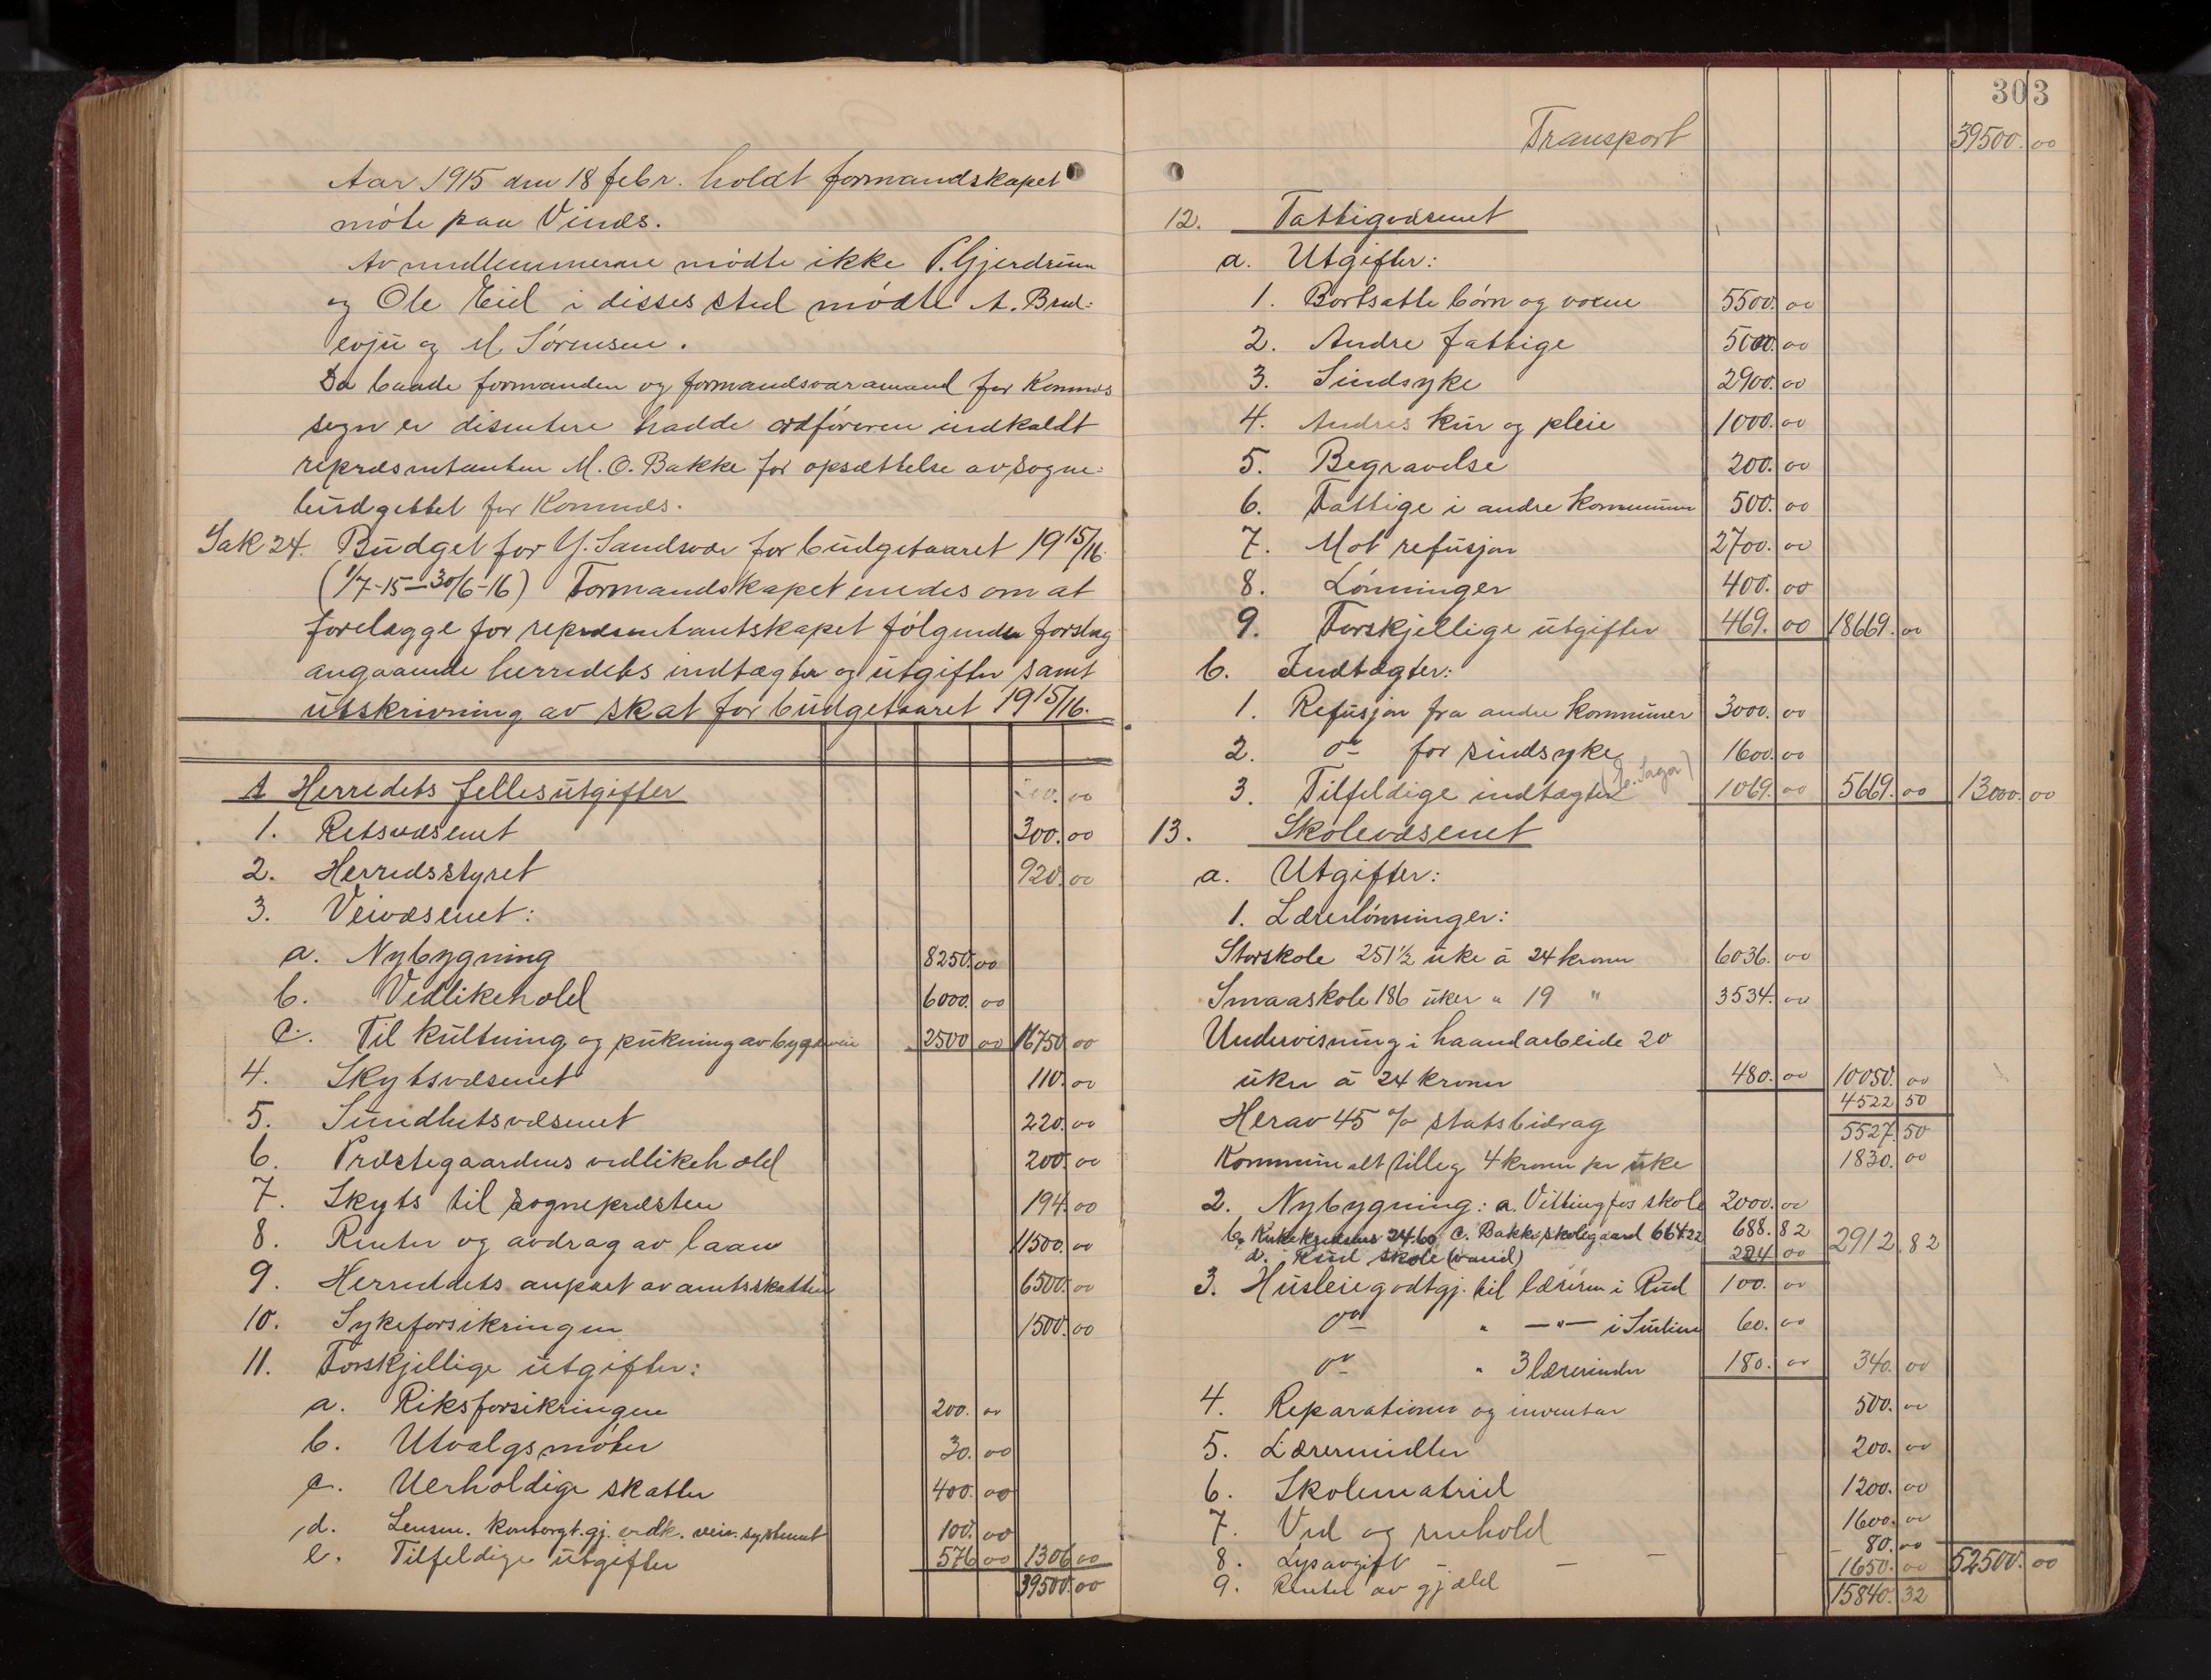 Aar 1915 den 18 febr. holdt formandskapet
møte paa Vinæs.
Av medlemmerne mødte ikke P. Gjerdrum
og Ole Eiel i disses sted mødte A. Bræd-
evju og M. Sørensen.
Da baade formanden og formandsvaramand for Komnes
sogn er disentere hadde ordføreren indkaldt
repræsentanten M. O. Bakke for opsættelse av sogne-
budgettet for Komnes.
Sak 24. Budget for Y. Sandsvær for budgetaaret 1915/16.
(1/7-15 – 30/6-16) Formandskapet enedes om at
forelægge for repræsentantskapet følgende forslag
angaaende herredets indtægter og utgifter samt
utskrivning av skat for budgetaaret 1915/16.
A Herredets fellesutgifter
1. Retsvæsenet 300.00
2. Herredsstyret 920.00
3. Veivæsenet:
a. Nybygning 8250.00
b. Vedlikehold 6000.00
c. Til kultning og pukning av bygdeveie 2500 00 16750 00
4. Skytsvæsenet 110.00
5. Sundhetsvæsenet 220.00
6. Præstegaardens vedlikehold 200.00
7. Skyts til sognepræsten 194.00
8. Renter og avdrag av laan 11500.00
9. Herredets anpart av amtsskatten 6500.00
10. Sykeforsikringen 1500.00
11. Forskjellige utgifter:
a. Riksforsikringen 200.00
b. Utvalgsmøter 30.00
c. Uerholdige skatter 400.00
d. Lensm. kontorgt.gj. vedk. veiv. systemet 100.00
e. Tilfeldige utgifter 576 00 1306 00
39500.00
303
Transport 39500.00
12. Fattigvæsenet
a. Utgifter:
1. Bortsatte børn og voxne 5500.00
2. Andre fattige 5000.00
3. Sindsyke 2900.00
4. Andres kur og pleie 1000.00
5. Begravelse 200.00
6. Fattige i andre kommuner 500.00
7. Mot refusjon 2700.00
8. Lønninger 400.00
9. Forskjellige utgifter 469.00 18669.00
b. Indtægter:
1. Refusjon fra andre kommuner 3000.00
2. do for sindsyke 1600.00
3. Tilfeldige indtægter 1069.00 5669.00 13000.00
13. Skolevæsenet
a. Utgifter:
1. Lærerlønninger:
Storskole 251½ uke á 24 kroner 6036.00
Smaaskole 186 uker " 19 " 3534.00
Undervisning i haandarbeide 20
uker á 24 kroner 480.00 10050.00
4522 50
Herav 45 % statsbidrag 5527.50
Kommunalt tilleg 4 kroner pr uke 1830.00
2. Nybygning: a. Vittingfos skole 2000.00
b. Kirkekredsens 24.60 c. Bakke skolegaard 664.22 688.82
d. Rud skole (vand) 224 00 2912.82
3. Husleiegodtgj. til læreren i Rud 100.00
do " —"— i Surlien 60.00
do " 3 lærerinder 180.00 340.00
4. Reparationer og inventar 500.00
5. Læremidler 200.00
6. Skolematriel 1200.00
7. Ved og renhold 1600.00
8. Lysavgift – – – – 80.00
9. Renter av gjæld 1650.00 52500.00
15840.32